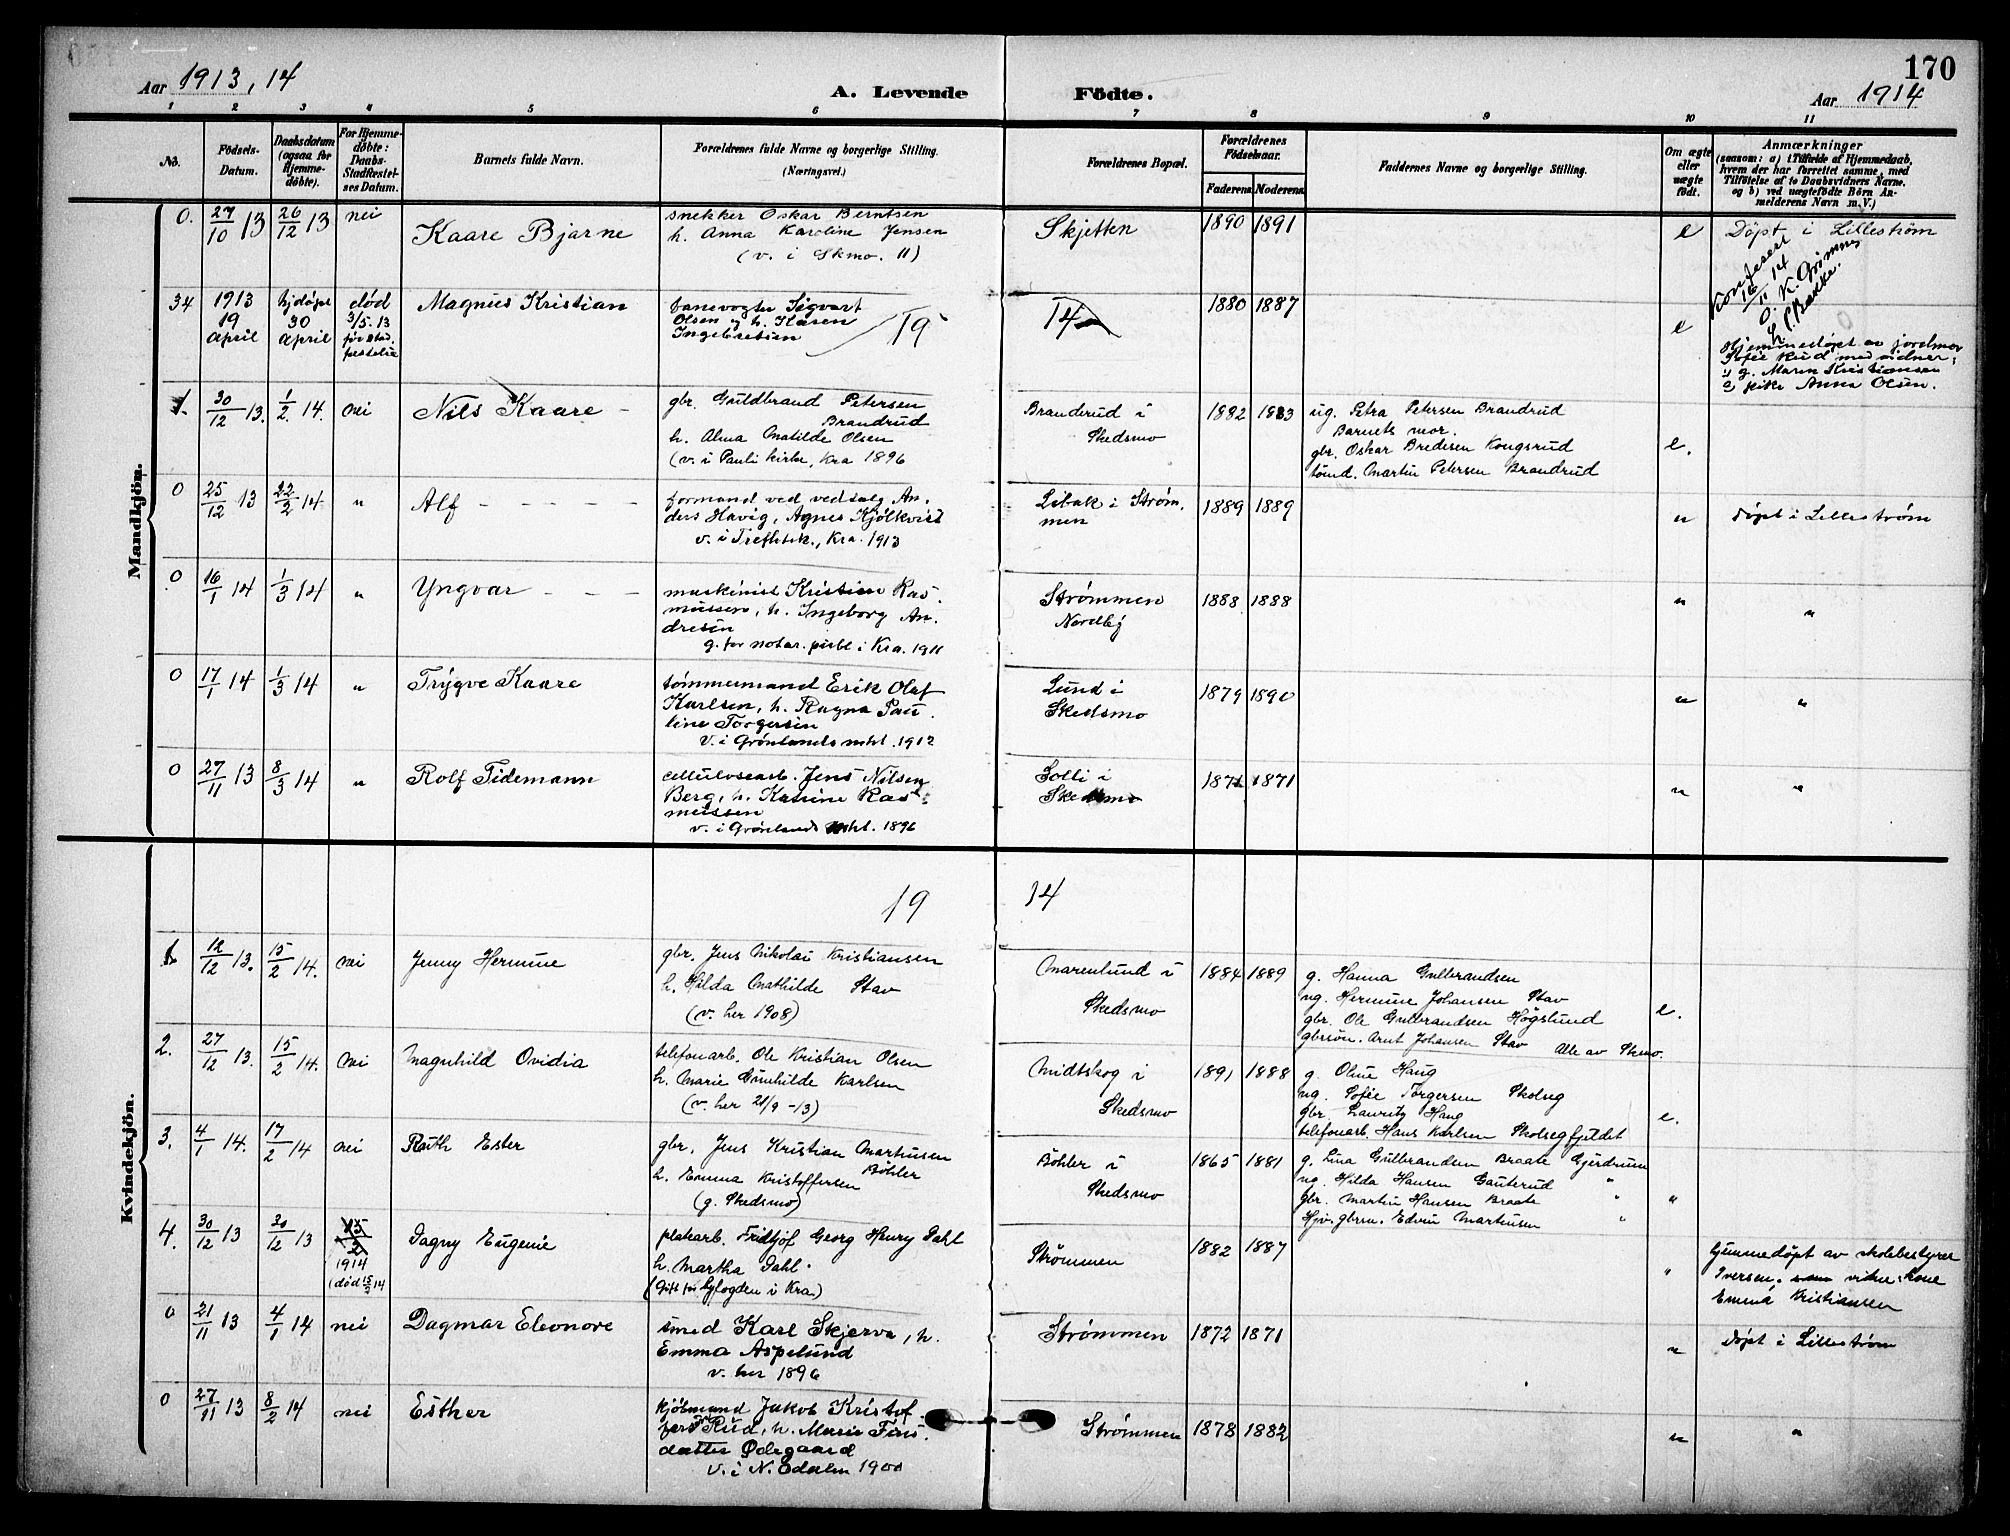 170
Aar 1913, 14
A. Levende Födte.
Aar 1914
1 2 3 4 5 6 7 8 9 10 11
No.
Födsels-
Datum.
Daabsdatum
(ogsaa for
Hjemme-
döbte).
For Hjemme-
döbte:
Daabs-
Stadfæstel-
ses Datum.
Barnets fulde Navn.
Forældrenes fulde Navne og borgerlige Stilling.
(Næringsvei.)
Forældrenes Bopæl.
Forældrenes
Födselsaar.
Faderens Moderens
Faddernes Navne og borgerlige Stilling.
Om ægte
eller
uægte
födt.
Anmærkninger
(saasom: a) i Tilfælde af Hjemmedaab,
hvem der har forrettet samme, med
Tilföielse af to Daabsvidners Navne,
og b) ved uægtefödte Börn An-
melderens Navn m. V.)
Mandkjön.
0. 27/10 13 26/12 13 nei Kaare Bjarne
snekker Oskar Berntsen
h. Anna Karoline Jensen
(v. i Skmo. 11)
Skjetten 1890 1891 e Døpt i Lillestrøm
Konfesert
16/11 14
O. K. Grimnes
L. P. Bakke.
34 1913
19
april
hjdöpt
30
april
död
3/5. 13
før stad
festelse
Magnus Kristian
banevogter Sigvart
Olsen og h. Karen
Ingebretsen
19 14
1880 1887 e
Hjemmedøpt av jordmor
Sofie Rud med vidner:
1) g. Maren Kristiansen
2) pike Anna Olsen.
1. 30/12 13. 1/2. 14. nei Nils Kaare -
gbr. Guldbrand Petersen
Brandrud
h. Alma Matilde Olsen
(v. i Pauli kirke, Kra 1896
Branderud i
Skedsmo
1882 1883
ug. Petra Petersen Brandrud
Barnets mor.
gbr. Oskar Bredesen Kongsrud
tømd. Martin Petersen Brandrud
e.
0 25/12 13 22/2 14 " Alf - - - - -
formand ved vedsalg An.
ders Havig, Agnes Kjölkvist
v. i Trefldtsk., Kra. 1913
Libak i Strøm.
men
1889 1889 " Døpt i Lillestrøm
0 16/1 14 1/3 14 " Yngvar - - -
maskinist Kristian Ras.
mussen, h. Ingeborg An.
dresen
g. for notar. publ i Kra. 1911
Strømmen
Nordby
1888 1888 " "
0 17/1 14 1/3 14 " Trygve Kaare
tømmermand Erik Olaf
Karlsen, h. Ragna Pau.
line Torgersen
v. i Grønlands mht. 1912
Lund i
Skedsmo
1879 1890 " "
0 27/11 13 8/3 14 " Rolf Tidemann
cellulosearb. Jens Nilsen
Berg, h. Katrine Ras.
mussen
v. i Grønlands mht. 1896
Solli i
Skedsmo
1871 1871 " "
Kvindekjön.
19 14
1. 12/12 13. 15/2 14. nei Jenny Hermine
gbr. Jens Nikolai Kristiansen
h. Hilda Mathilde Stav
(v. her 1908)
Marenlund i
Skedsmo
1884 1889
g. Hanna Gulbrandsen
ug. Hermine Johansen Stav
gbr. Ole Gulbrandsen Høgslund
gbrsön. Arnt Johansen Stav Alle av Skmo.
e.
2. 27/12 13. 15/2 14. nei Magnhild Ovidia
telefonarb. Ole Kristian Olsen
h. Marie Gunhilde Karlsen
(v. her 21/9 -13)
Midtskog i
Skedsmo
1891 1888
g. Oline Haug
ug. Sofie Torgersen Skolseg
gbr. Lauritz Haug
telefonarb. Hans Karlsen Skolsegfjeldet
e.
3. 4/1 14. 17/2 14 nei Ruth Ester
gbr. Jens Kristian Martinsen
Böhler
h. Emma Kristoffersen
(g. Skedsmo)
Böhler i
Skedsmo
1865 1881
g. Lina Gulbrandsen Braate Gjerdrum
ug. Hilda Hansen Gauterud "
gbr. Martin Hansen Braate "
Hjv. gbrsn. Edvin Martinsen "
"
4. 30/12 13 30/12 13 15/2
1914
(død 15/3 14
Dagny Eugenie
platearb. Fridtjof Georg Henry Dahl
h. Martha Dahl.
(Gift for byfogden i Kra)
Strømmen
1882 1887 "
hjemmedøpt av skolebestyrer
Iversen, vidne: kone
Emma Kristiansen
0 21/11 13 4/1 14 nei Dagmar Eleonore
smed Karl Skjerve, h.
Emma Aspelund
v. her 1896
Strømmen 1872 1871 " Døpt i Lillestrøm
0 27/11 13 8/2 14 nei Esther
kjøbmand Jakob Kristof.
fersen Rud, h. Marie Fins.
datter Ødegaard
v. i N. Edalen 1900
Strømmen 1878 1882 " "